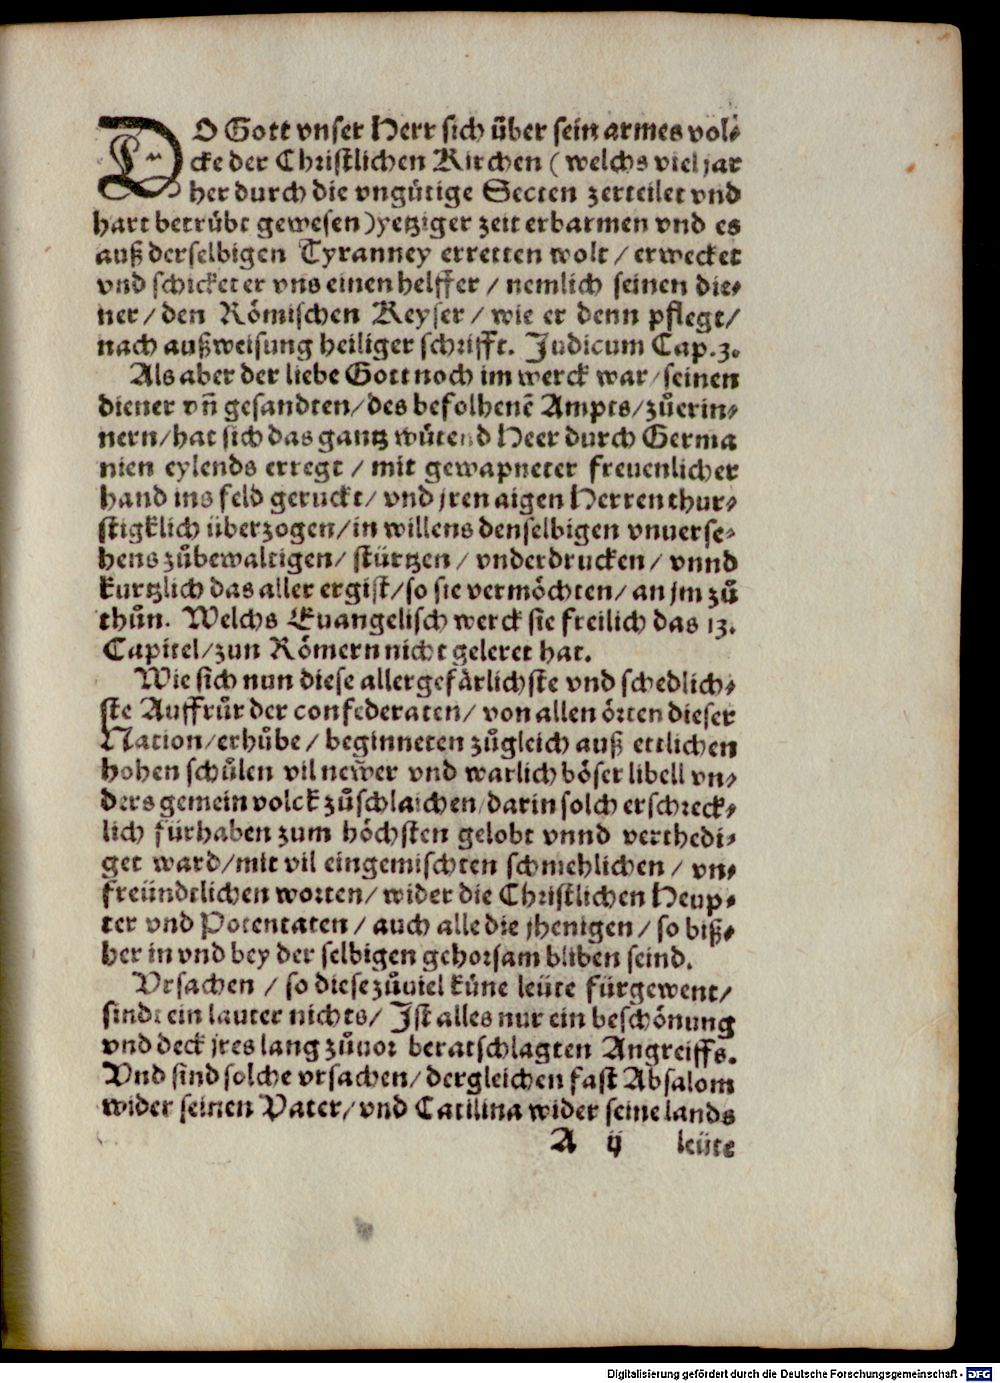 DO Gott vnser Herr sich über sein armes vol⸗
cke der Christlichen Kirchen (welchs viel jar
her durch die vngütige Secten zerteilet vnd
hart betrübt gewesen) yetziger zeit erbarmen vnd es
auß derselbigen Tyranney erretten wolt / erwecket
vnd schicket er vns einen helffer / nemlich seinen die⸗
ner / den Römischen Keyser / wie er denn pflegt /
nach außweisung heiliger schrifft. Judicum Cap.3.
Als aber der liebe Gott noch im werck war / seinen
diener vñ gesandten / des befolhenē Ampts / zůerin⸗
nern / hat sich das gantz wütend Heer durch Germa
nien eylends erregt / mit gewapneter freuenlicher
hand ins feld geruckt / vnd jren aigen Herren thur⸗
stigklich überzogen / in willens denselbigen vnuerse⸗
hens zůbewaltigen / stürtzen / vnderdrucken / vnnd
kurtzlich das aller ergist / so sie vermöchten / an jm zů
thůn. Welchs Euangelisch werck sie freilich das 13.
Capitel / zun Römern nicht geleret hat.
Wie sich nun diese allergefärlichste vnd schedlich⸗
ste Auffrůr der confederaten / von allen örten dieser
Nation / erhůbe / beginneten zůgleich auß ettlichen
hohen schůlen vil newer vnd warlich böser libell vn⸗
ders gemein volck zůschlaichen / darin solch erschreck⸗
lich fürhaben zum höchsten gelobt vnnd verthedi⸗
get ward / mit vil eingemischten schmehlichen / vn⸗
freündtlichen worten / wider die Christlichen Heup⸗
ter vnd Potentaten / auch alle die jhenigen / so biß⸗
her in vnd bey der selbigen gehorsam bliben seind.
Vrsachen / so diese zůuiel küne leüte fürgewent /
sindt ein lauter nichts / Jst alles nur ein beschönung
vnd deck jres lang zůuor beratschlagten Angreiffs.
Vnd sind solche vrsachen / dergleichen fast Absalom
wider seinen Vater / vnd Catilina wider seine lands
A ij leüte
Digitalisierung gefördert durch die Deutsche Forschungsgemeinschaft - DFG